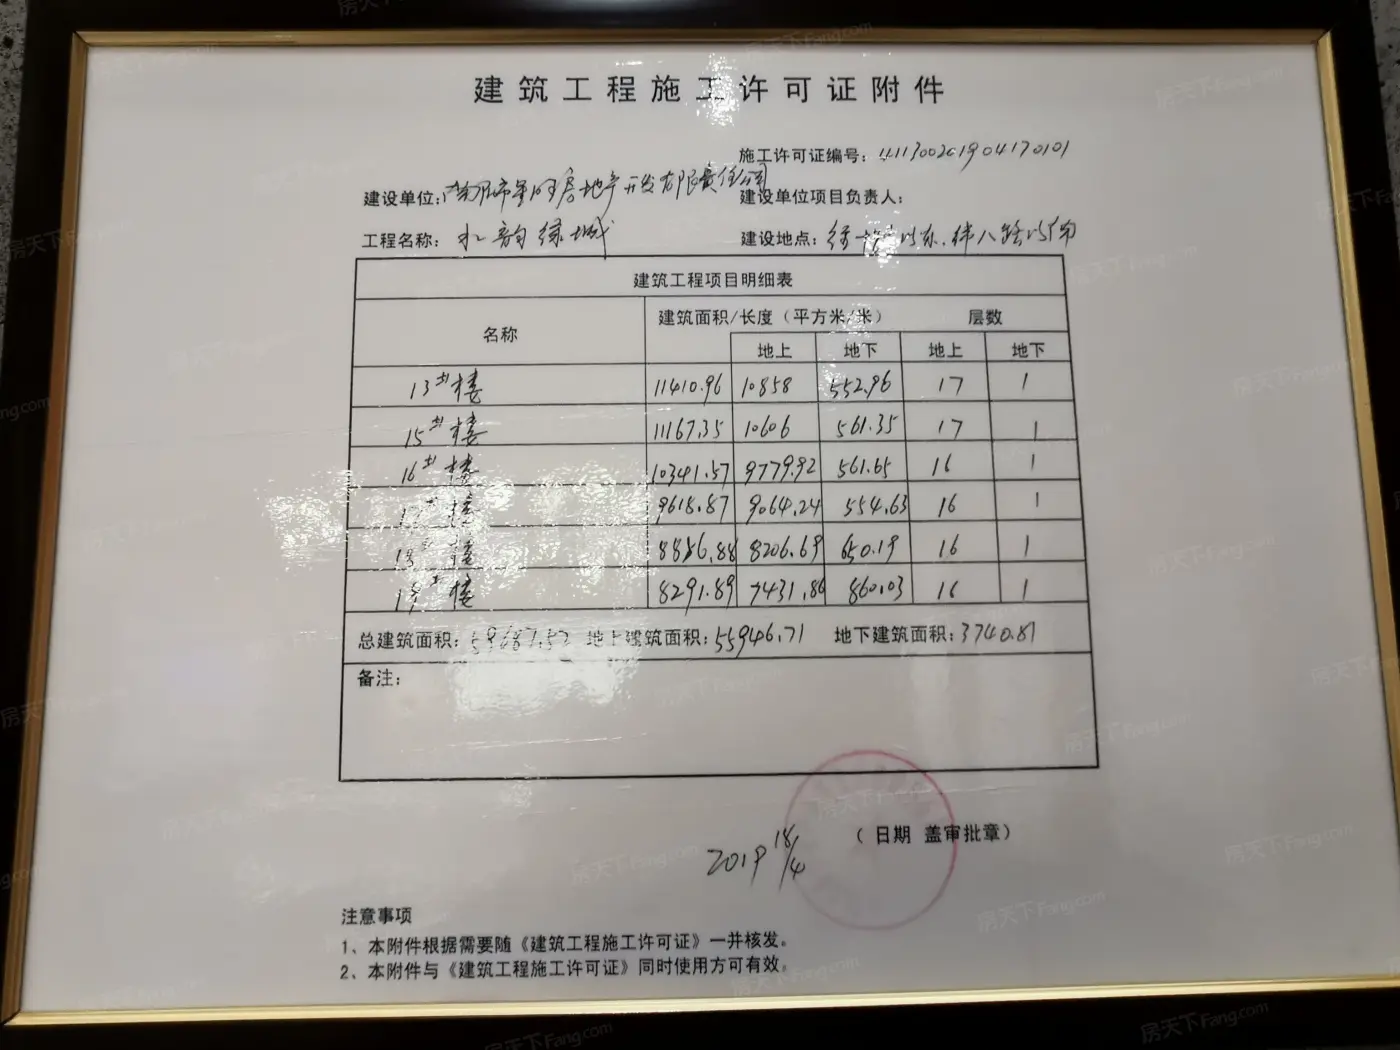 建筑工程施工许可证附件
施工许可证编号：411300201904170101
建设单位：南阳市 房地产开发有限责任公司 建设单位项目负责人：
工程名称： 韵绿城 建设地点： 以东、纬八路以南
建筑工程项目明细表
名称 建筑面积/长度（平方米/米） 层数
地上 地下 地上 地下
13#楼 11410.96 10858 552.96 17 1
15#楼 11167.35 10606 561.35 17 1
16#楼 10341.57 9779.92 561.65 16 1
17#楼 9618.87 9064.24 554.63 16 1
18#楼 8856.88 8206.69 650.19 16 1
19#楼 8291.89 7431.86 860.03 16 1
总建筑面积：59687.52 地上建筑面积：55946.71 地下建筑面积：3740.81
备注：
（日期 盖审批章）
2019 18/4
注意事项
1、本附件根据需要随《建筑工程施工许可证》一并核发。
2、本附件与《建筑工程施工许可证》同时使用方可有效。
房天下Fang.com